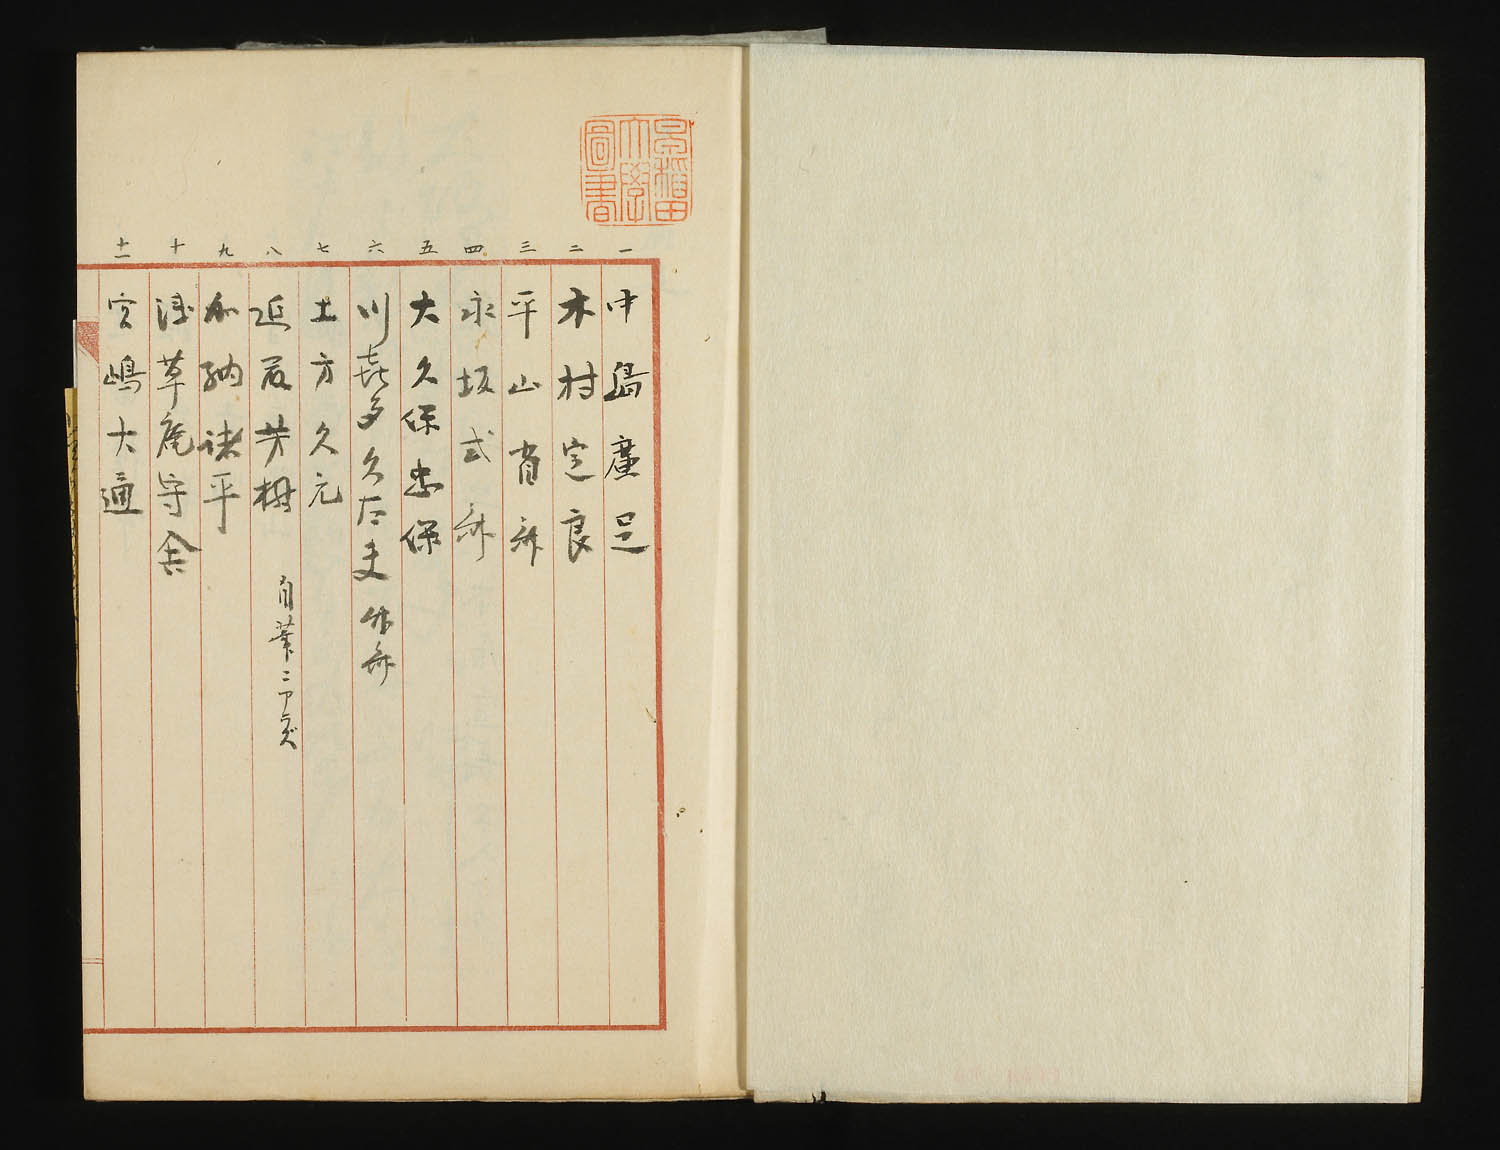 早稲田
大學
圖書
一 中島廣足
二 木村定良
三 平山省斎
四 永坂弍斎
五 大久保忠保
六 川喜多久太夫
七 土方久元
八 近厳芳樹 自筆ニアラズ
九 加納諸平
十 浅草庵守舎
十一 宮嶋大通